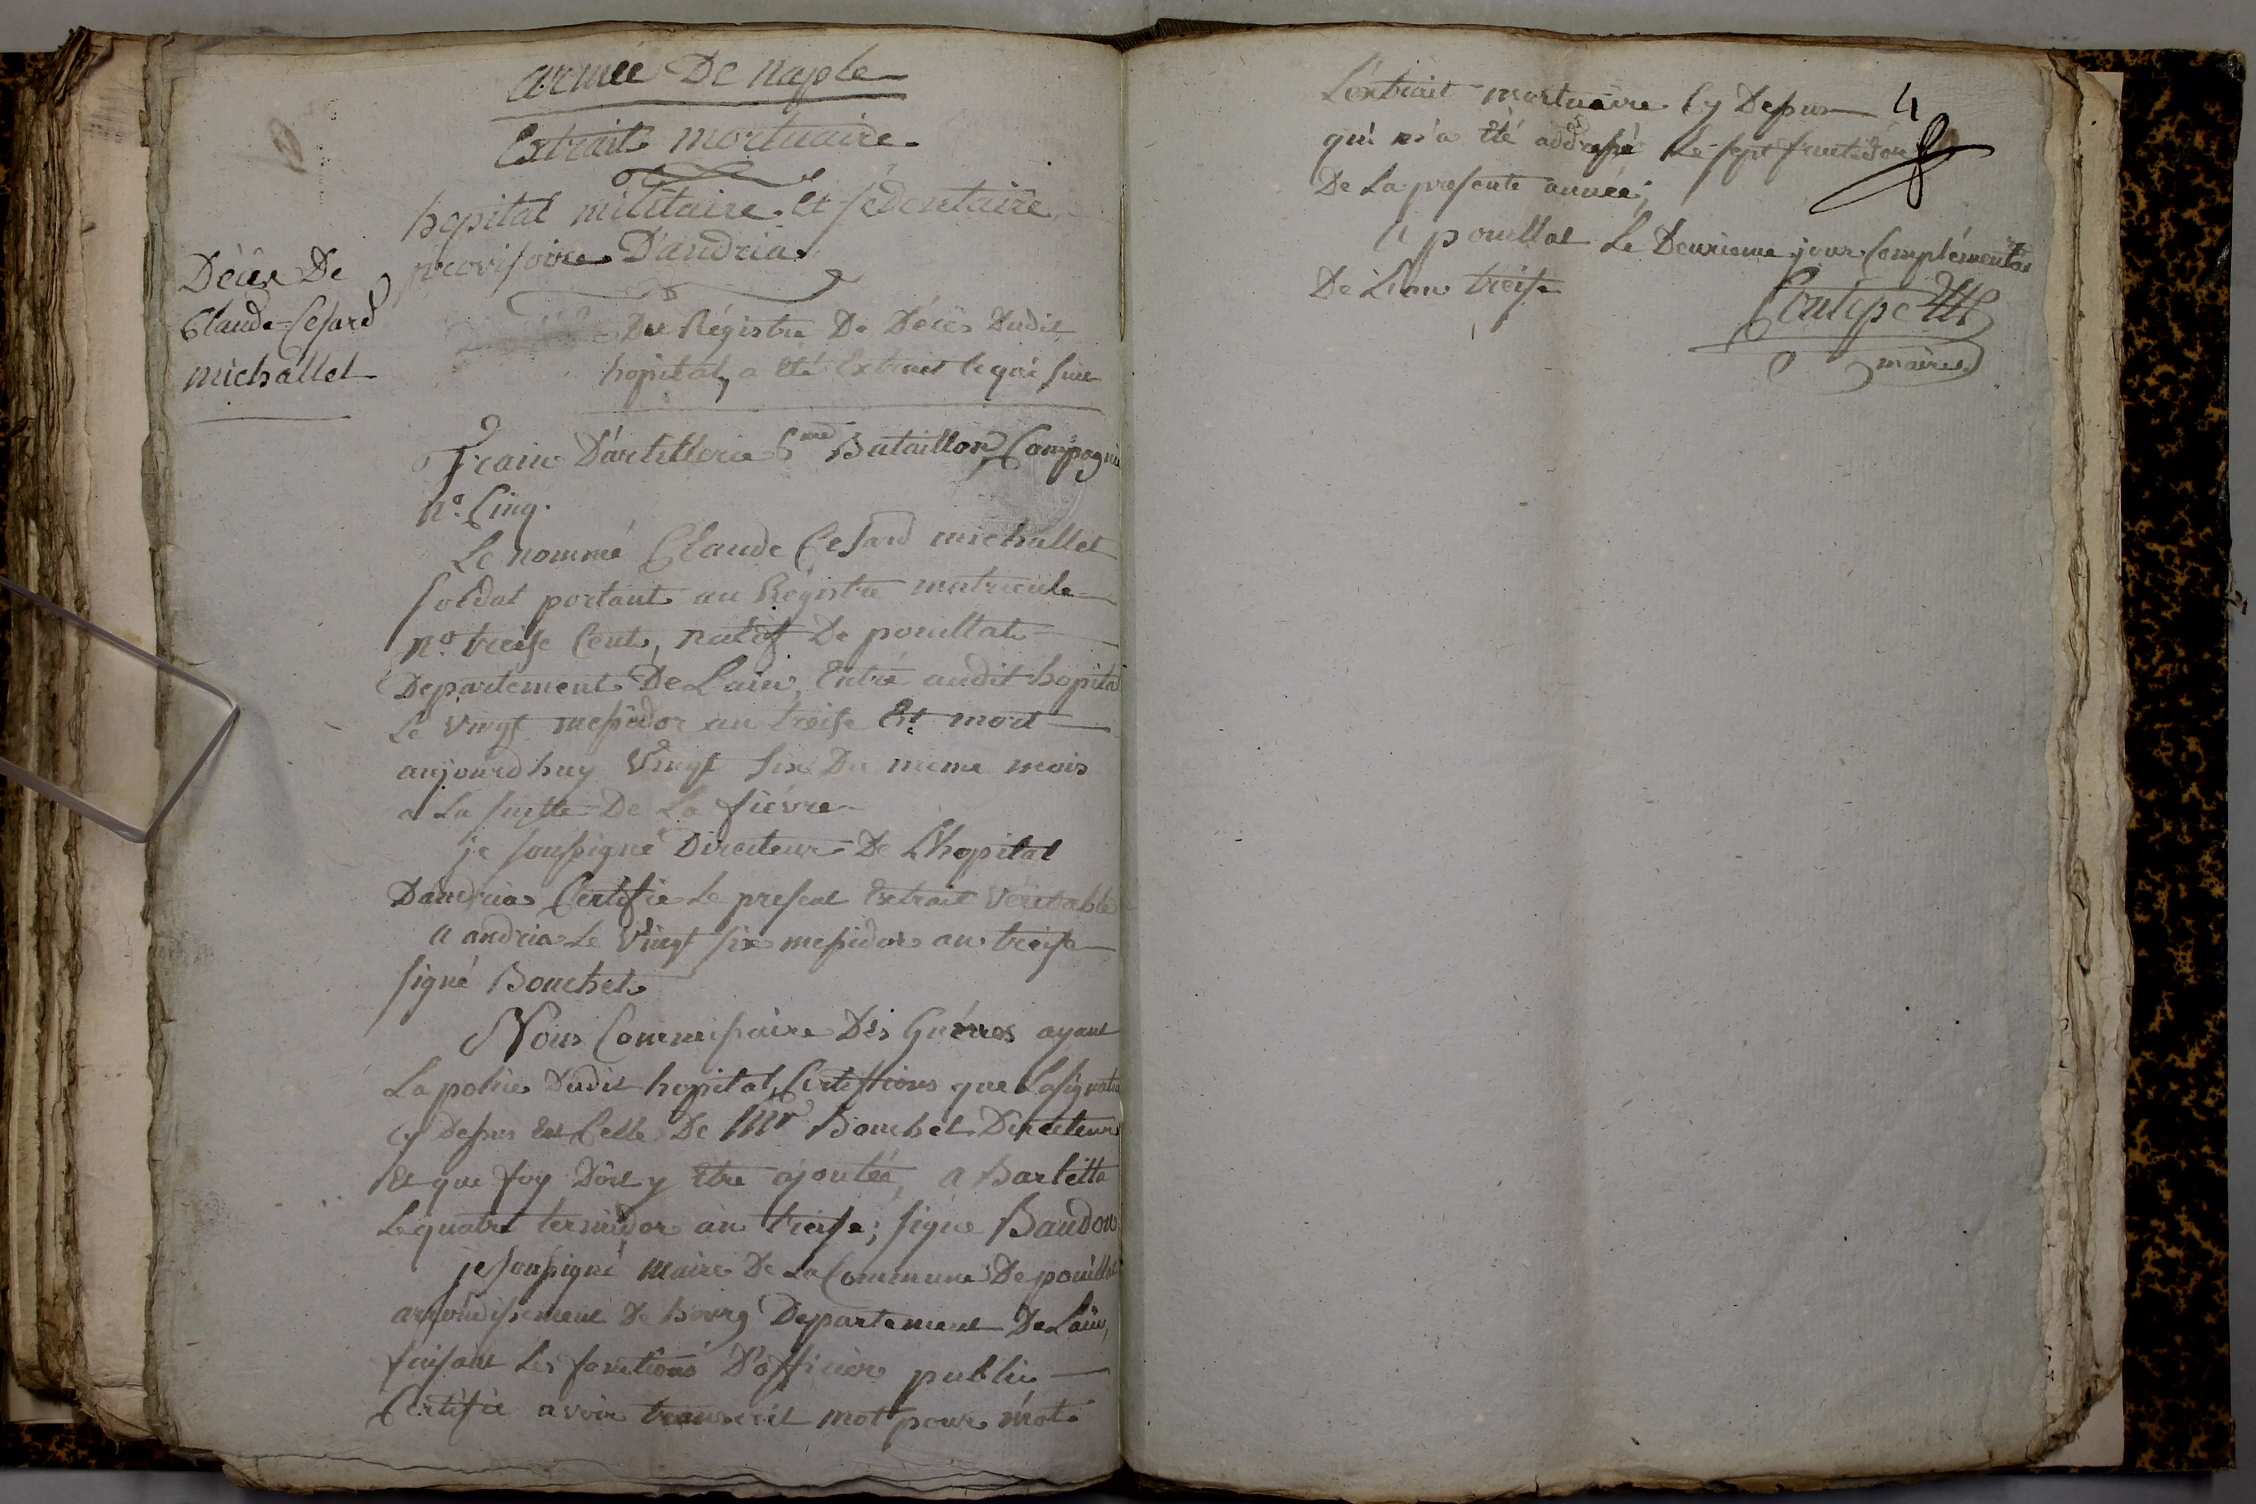 armée De naple
Extrait mortuaire.
hopital militaire et sédentaire
provisoire D'andria
Décès De
Claude-Cesard
michallet
Du Régistre De Décès Dudit
hopital, a été Extrait le qui suit
Train D'artillerie 6me Bataillon, Compagnie
n.o Cinq.
Le nommé Claude Cesard michallet
soldat portant au Régistre matricule
n.o treise Cent, natif De pouillat
Departement De Lain, Entré audit hopital
Le vingt messidor an treise Et mort
aujourdhuy vingt six Du meme mois
a La suitte De La fièvre
je soussigné Directeur De L'hopital
Dandria Certifie Le present Extrait véritable
a andria Le vingt six messidor an treise
signé Bouchet
Nous Commissaire Dés Guérres ayant
La police Dudit hopital, Certiffions que La signature
cy dessus Est Celle De Mr Bouchet Directeur
Et que foy Doit y Etre ajoutée, a Barletta
Le quatre térmidor an treise; signé Baudon
je soussigné maire De La Commune De pouillat
arrondissement De bourg Departement De Lain,
faisant Les fonctions D'officier public
Certifie avoir transcrit mot pour mot
L'extrait mortuaire Cy Dessus 4
qui m'a été addressé Le sept fructidor
De La presente année;
A pouillat Le Deuxieme jour Complémentaire
De Lan treise
maire